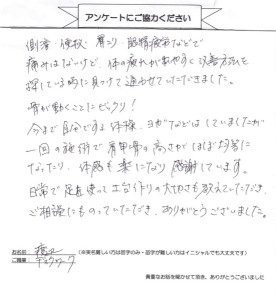 アンケートにご協力ください
側湾・便秘・肩こり・眼精疲労などで
痛みはないけど、体の疲れがとれやすく改善方法を
探している時に見つけて通わせていただきました。
骨が動くことにビックリ!
今まで自分でする体操、ヨガなどはしていましたが
一回の施術で肩甲骨の高さがほぼ均等に
なったり、体感も楽になり感謝しています。
日常で足を使って土台作りの大切さも教えていただき、
ご相談にものっていただき、ありがとうございました。
お名前
(※本名難しい方は苗字のみ・苗字が難しい方はイニシャルでも大丈夫です)
ご職業 デスクワーク
貴重なお話を聞かせて頂き、ありがとうございました